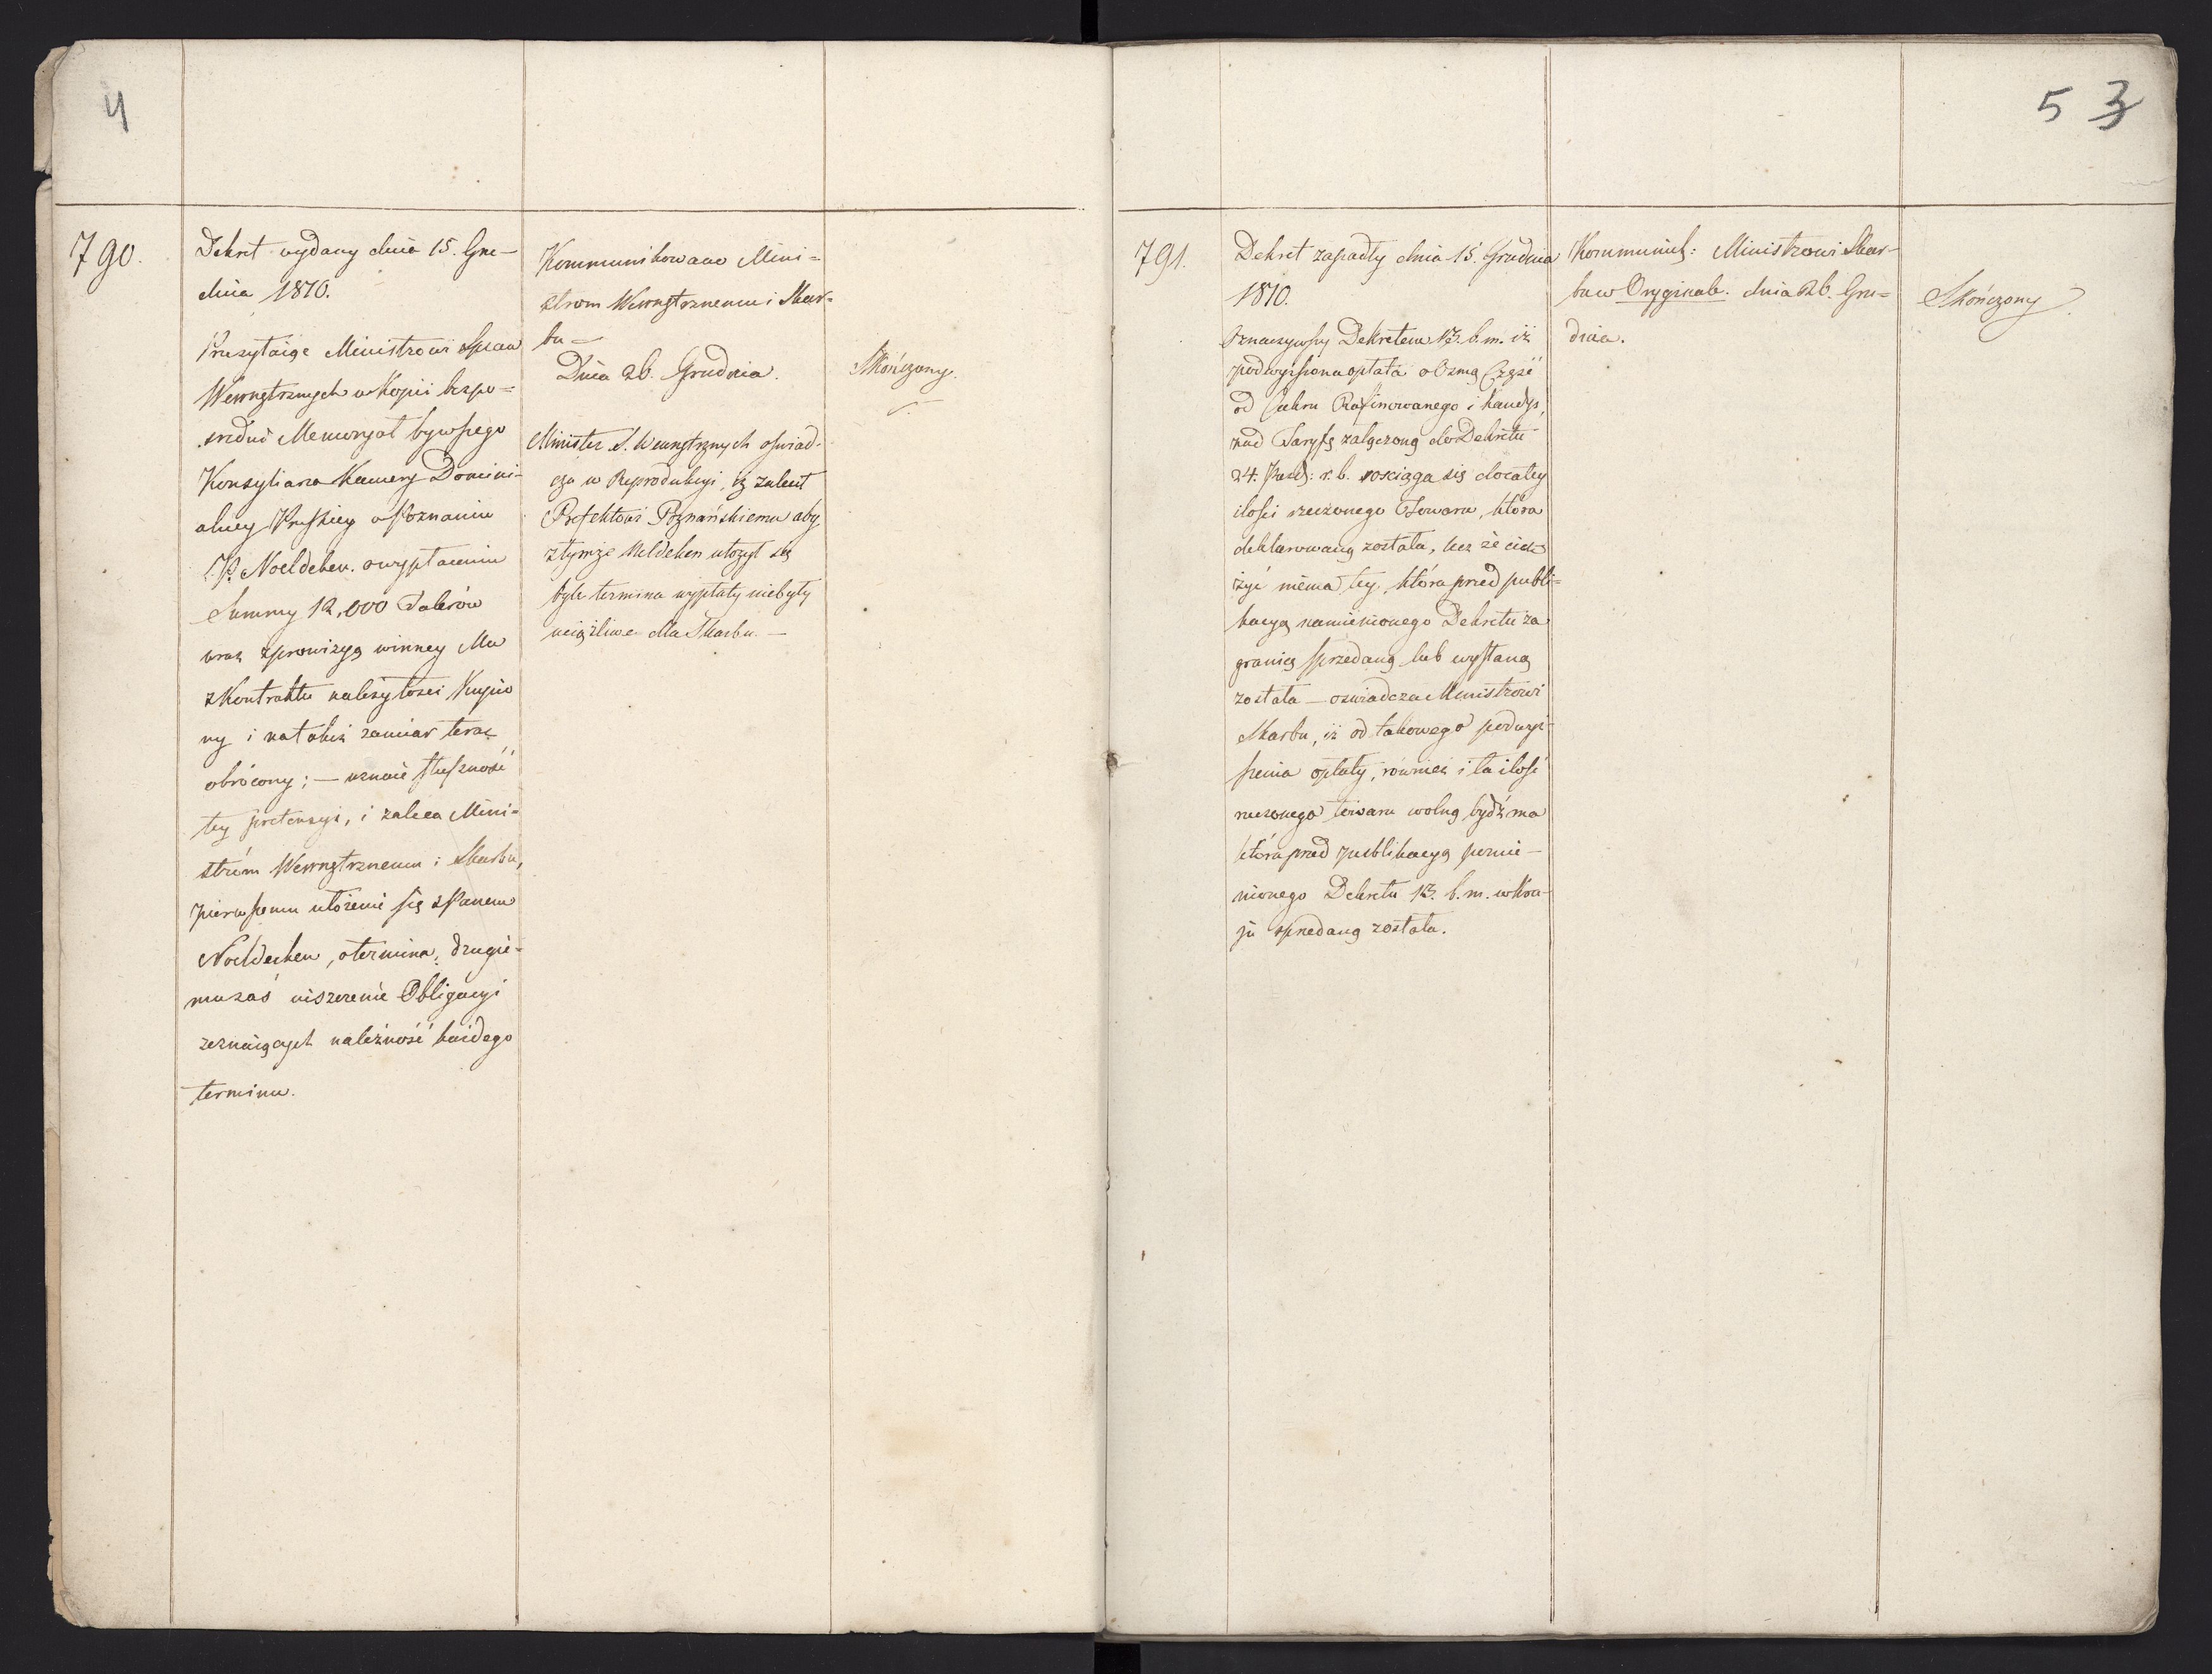 4
790.
Dekret wydany dnia 15. Gru-
dnia 1810.
Przesyłaiąc Ministrowi Spraw
Wewnętrznych w Kopii bezpo=
srednié Memoryał bywszego
Konsyliarza Kamery Domini-
alney Pruskiey w Poznaniu
P. Noeldehen. o wypłacenie
Summy 12,000 Talerów
wraz z prowizyą winney Mu
z Kontraktu należytości Kupno
ny i na takiż zamiar teraz
obrócony; — uznaie słuszność
tey pretensyi, i zaleca Mini=
stróm Wewnętrznemu i Skarbu,
pierwszemu ułożenie się z Panem
Noeldechen, o termina, drugie=
mu zaś uiszczenie Obligacyi
zeznaiących należność każdego
terminu.
Kommunikowano Mini=
strom Wewnętrznemu i Skar=
bu —
Dnia 26. Grudnia.
Minister S. Wewnętrznych oswiad-
cza w Reprodukcyi, iż zalecił
Prefektowi Poznańskiemu aby
z tymże Neldehen ułożył się
byle termina wypłaty niebyły
uciążliwe dla Skarbu. —
Skończony.
5 3
791.
Dekret zapadły dnia 15. Grudnia
1810.
Oznaczywszy Dekretem 13. b. m. iż
podwyższona opłata o Ósmą Część
od Cukru Rafinowanego i kandys,
nad Taryfę załączoną do Dekretu
24. Paźd: r. b. rosciąga się do całey
ilości rzeczonego Towaru, która
deklarowaną została, lecz że cią
żyć niéma tey, która przed publi=
kacyą namienionego Dekretu za
granicę sprzedaną lub wysłaną
została — oswiadcza Ministrowi
Skarbu, iż od takowego podwyż-
szenia opłaty, również i ta ilość
rzeczonego towaru wolną bydź ma
która przed publikacyą pomie-
nionego Dekretu 13. b. m. w Kra-
ju sprzedaną została.
Kommunik: Ministrowi Skar-
bu w Oryginale. dnia 26. Gru=
dnia.
Skończony.